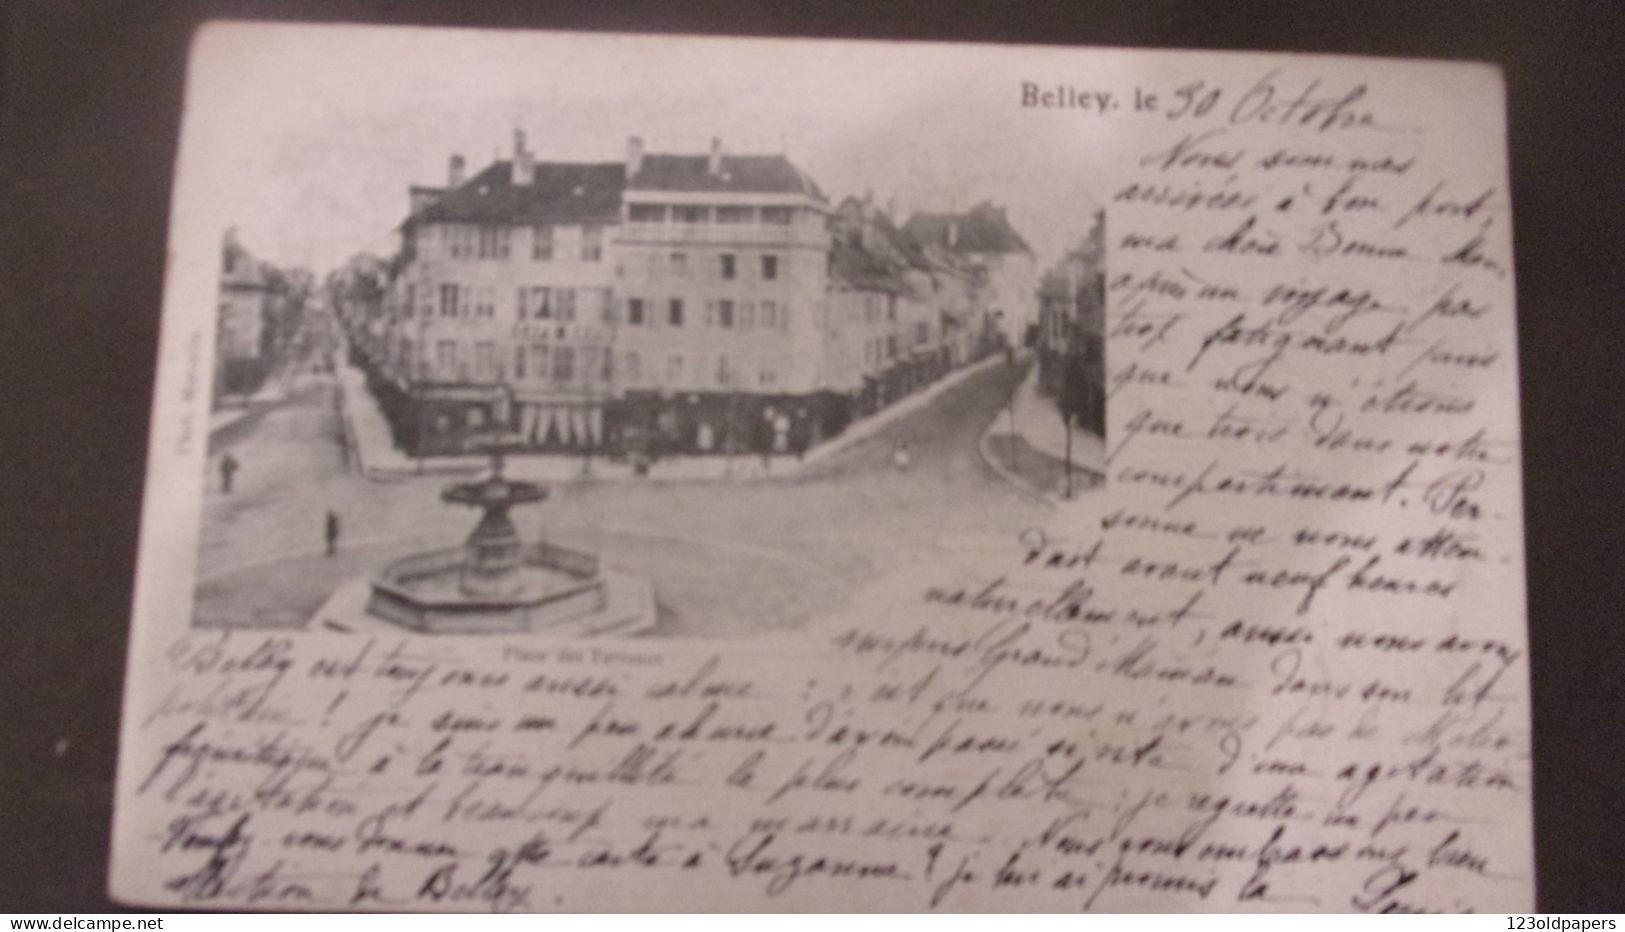 Belley, le 30 Octobre
Nous sommes
arrivées à bon port,
ma chère Bonne Man,
après un voyage pas
trop fatiguant puis
que nous n'étions
que trois dans notre
compartiment. Per-
sonne ne nous atten-
dait avant neuf heures
naturellement, aussi nous avons
surpris Grand'Maman dans son lit.
Belley est toujours aussi calme : c'est que nous n'avons pas de Métro-
politain ! je suis un peu ahurie d'avoir passé si vite d'une agitation
frénétique à la tranquillité la plus complète : je regrette un peu
l'agitation et beaucoup ma marraine. Nous vous embrassons bien
Voulez-vous donner cette carte à Suzanne ? je lui ai promis la
collection de Belley.
Place des Terreaux
Phot.
123oldpapers